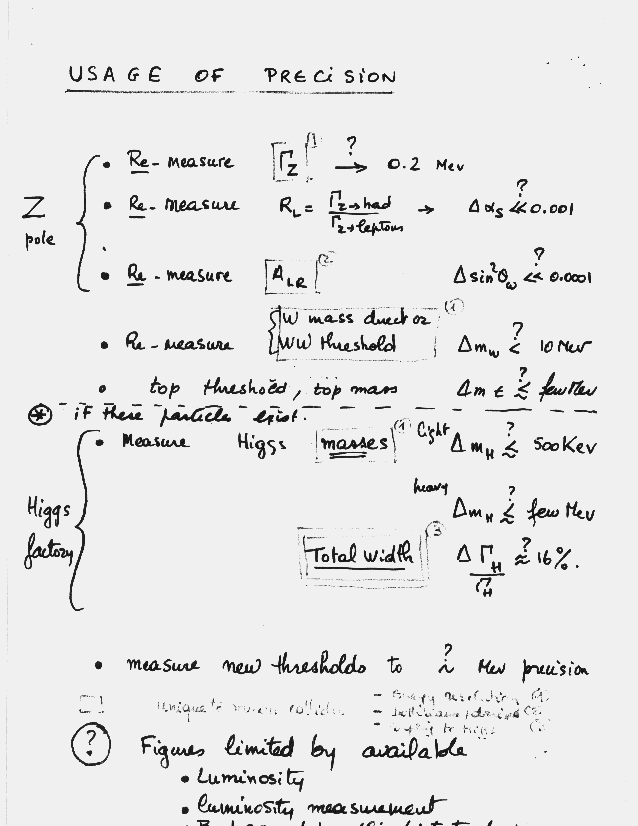 USAGE OF PRECiSiON
Z pole
• Re-measure Γz (1) ?→ 0.2 Mev
• Re-measure RL = Γz→had / Γz→leptons → Δαs ?≪ 0.001
• Re-measure ALR (2) Δsin²θw ?≪ 0.0001
• Re-measure { W mass direct or WW threshold (1) Δmw ?< 10 Mev
• top threshold, top mass Δmt ?≲ few Mev
* if these particles exist.
Higgs factory
• Measure Higgs masses (1) light ΔmH ?≲ 500 Kev
heavy ΔmH ?≲ few Mev
Total width (3) ΔΓH / ΓH ?≈ 16%.
• measure new thresholds to ?~ Mev precision
Unique to muon collider – Energy resolution (1)
(2)
– to Higgs (3)
? Figures limited by available
• Luminosity
• luminosity measurement